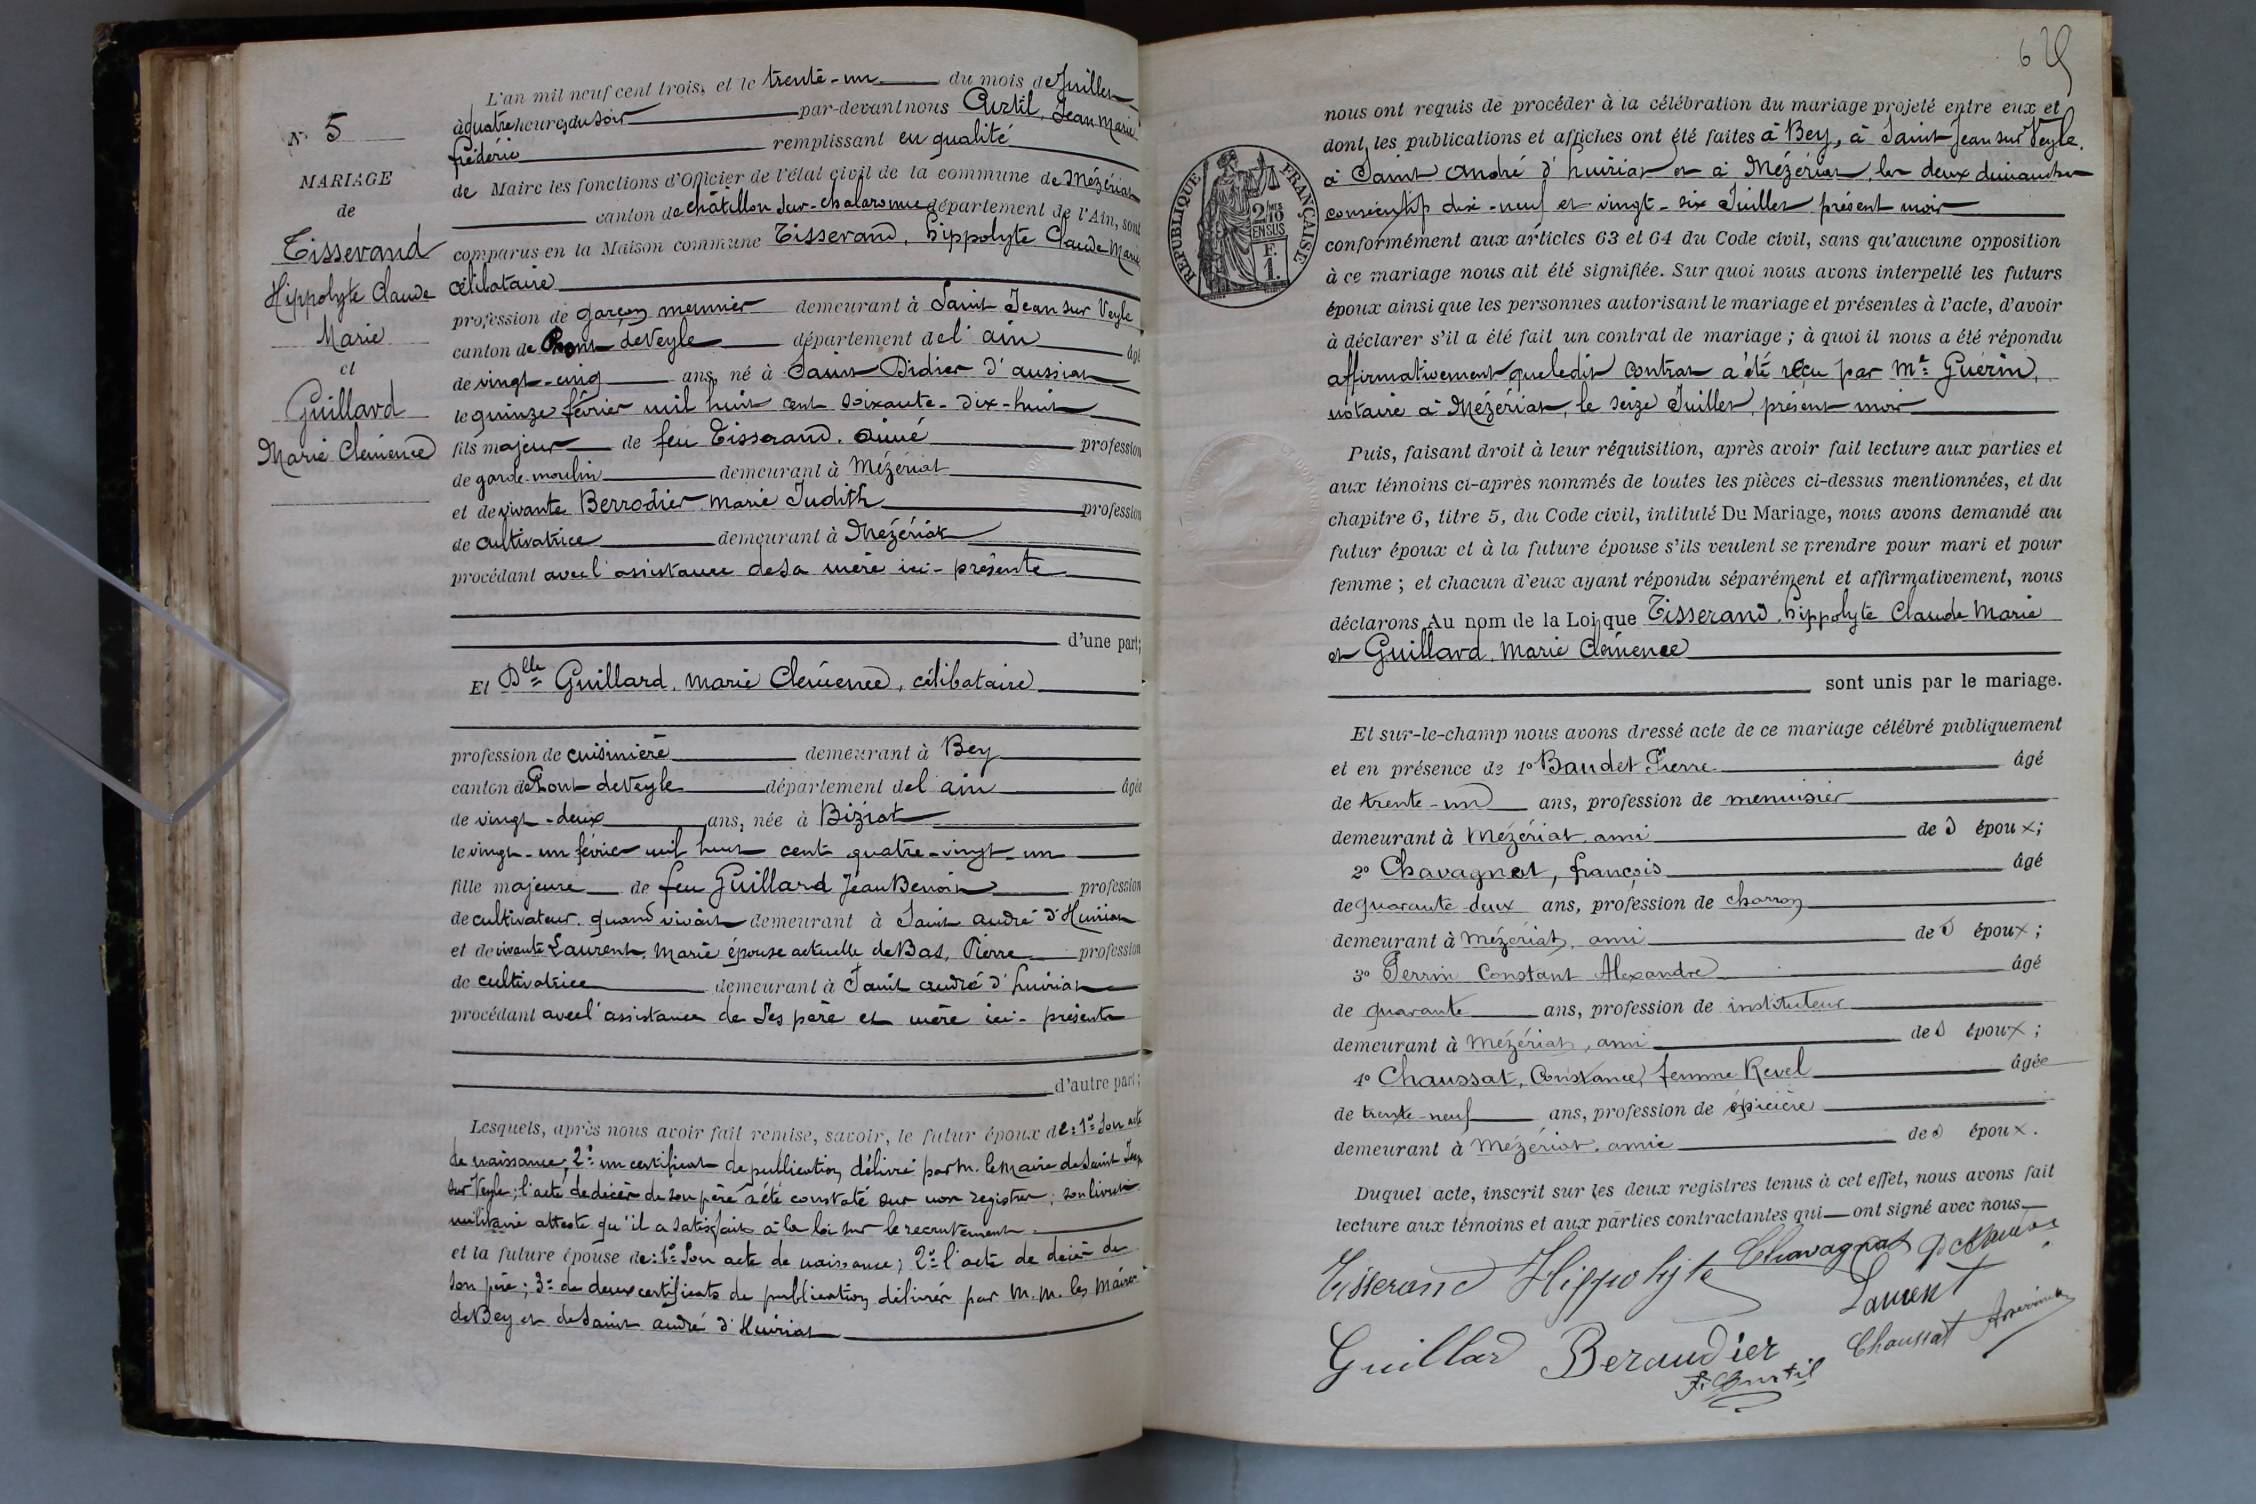 N° 5
MARIAGE
de
Tisserand
Hippolyte Claude
Marie
et
Guillard
Marie Clémence
L'an mil neuf cent trois, et le trente-un du mois de Juillet
à quatre heures du soir par-devant nous Curtil, Jean Marie
frédéric remplissant en qualité
de Maire les fonctions d'Officier de l'état civil de la commune de Mézériat
canton de châtillon sur-chalaronne département de l'Ain, sont
comparus en la Maison commune Tisserand, hippolyte Claude Marie
célibataire
profession de garçon meunier demeurant à Saint Jean sur Veyle
canton de Pont de Veyle département del'ain âgé
de vingt-cinq ans, né à Saint Didier d'aussiat
le quinze février mil huit cent soixante-dix-huit
fils majeur de feu Tisserand. aimé profession
de garde-moulin demeurant à Mézériat
et de vivante Berrodier marie Judith profession
de cultivatrice demeurant à Mézériat
procédant avec l'assistance de sa mère ici-présente
d'une part;
Et Dlle Guillard, marie Clémence, célibataire
profession de cuisinière demeurant à Bey
canton de Pont de Veyle département del'ain âgée
de vingt-deux ans, née à Biziat
le vingt-un février mil huit cent quatre-vingt-un
fille majeure de feu Guillard Jean Benoit profession
de cultivateur. quand vivait demeurant à Saint andré d'Huiriat
et de vivante Laurent, Marie épouse actuelle de Bas, Pierre profession
de cultivatrice demeurant à Saint andré d'huiriat
procédant avec l'assistance de ses père et mère ici-présente
d'autre part;
Lesquels, après nous avoir fait remise, savoir, le futur époux de: 1° Son acte
de naissance; 2° un certificat de publication délivré par m. le maire de Saint Jean
sur Veyle; l'acte de décès de son père a été constaté sur nos registres; son livret
militaire atteste qu'il a satisfait à la loi sur le recrutement.
et la future épouse de: 1° Son acte de naissance; 2° l'acte de décès de
son père; 3° de deux certificats de publication délivrés par M.M. les Maires
de Bey et de Saint andré d'Huiriat
nous ont requis de procéder à la célébration du mariage projeté entre eux et
dont les publications et affiches ont été faites à Bey, à Saint Jean sur Veyle,
à Saint André d'huiriat et à Mézériat, les deux dimanches
consécutifs dix-neuf et vingt-six Juillet présent mois
conformément aux articles 63 et 64 du Code civil, sans qu'aucune opposition
à ce mariage nous ait été signifiée. Sur quoi nous avons interpellé les futurs
époux ainsi que les personnes autorisant le mariage et présentes à l'acte, d'avoir
à déclarer s'il a été fait un contrat de mariage; à quoi il nous a été répondu
affirmativement que ledit contrat a été reçu par Me Guérin,
notaire à Mézériat, le seize Juillet, présent mois
REPUBLIQUE FRANÇAISE
2/10
EN SUS
F.
1.
Puis, faisant droit à leur réquisition, après avoir fait lecture aux parties et
aux témoins ci-après nommés de toutes les pièces ci-dessus mentionnées, et du
chapitre 6, titre 5, du Code civil, intitulé Du Mariage, nous avons demandé au
futur époux et à la future épouse s'ils veulent se prendre pour mari et pour
femme; et chacun d'eux ayant répondu séparément et affirmativement, nous
déclarons Au nom de la Loi, que Tisserand, hippolyte Claude Marie
et Guillard, Marie Clémence
sont unis par le mariage.
Et sur-le-champ nous avons dressé acte de ce mariage célébré publiquement
et en présence de 1° Baudet Pierre âgé
de trente-un ans, profession de menuisier
demeurant à Mézériat, ami des époux;
2° Chavagnat, françois âgé
de quarante deux ans, profession de charron
demeurant à Mézériat, ami des époux;
3° Perrin Constant Alexandre âgé
de quarante ans, profession de instituteur
demeurant à Mézériat, ami des époux;
4° Chaussat, Constance, femme Revel âgée
de trente-neuf ans, profession de épicière
demeurant à Mézériat, amie des époux.
Duquel acte, inscrit sur les deux registres tenus à cet effet, nous avons fait
lecture aux témoins et aux parties contractantes qui ont signé avec nous
Tisserand Hippolyte Chavagnat
Laurent
Guillard Beraudier Chaussat
F. Curtil